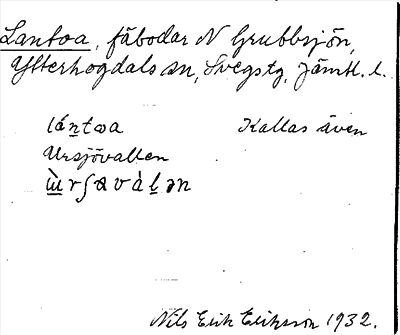 Lantoa, fäbodar N Grubbsjön,
Ytterhogdals sn, Svegs tg, Jämtl. l.
Kallas även
Ursjövallen
Nils Erik Eriksson 1932.